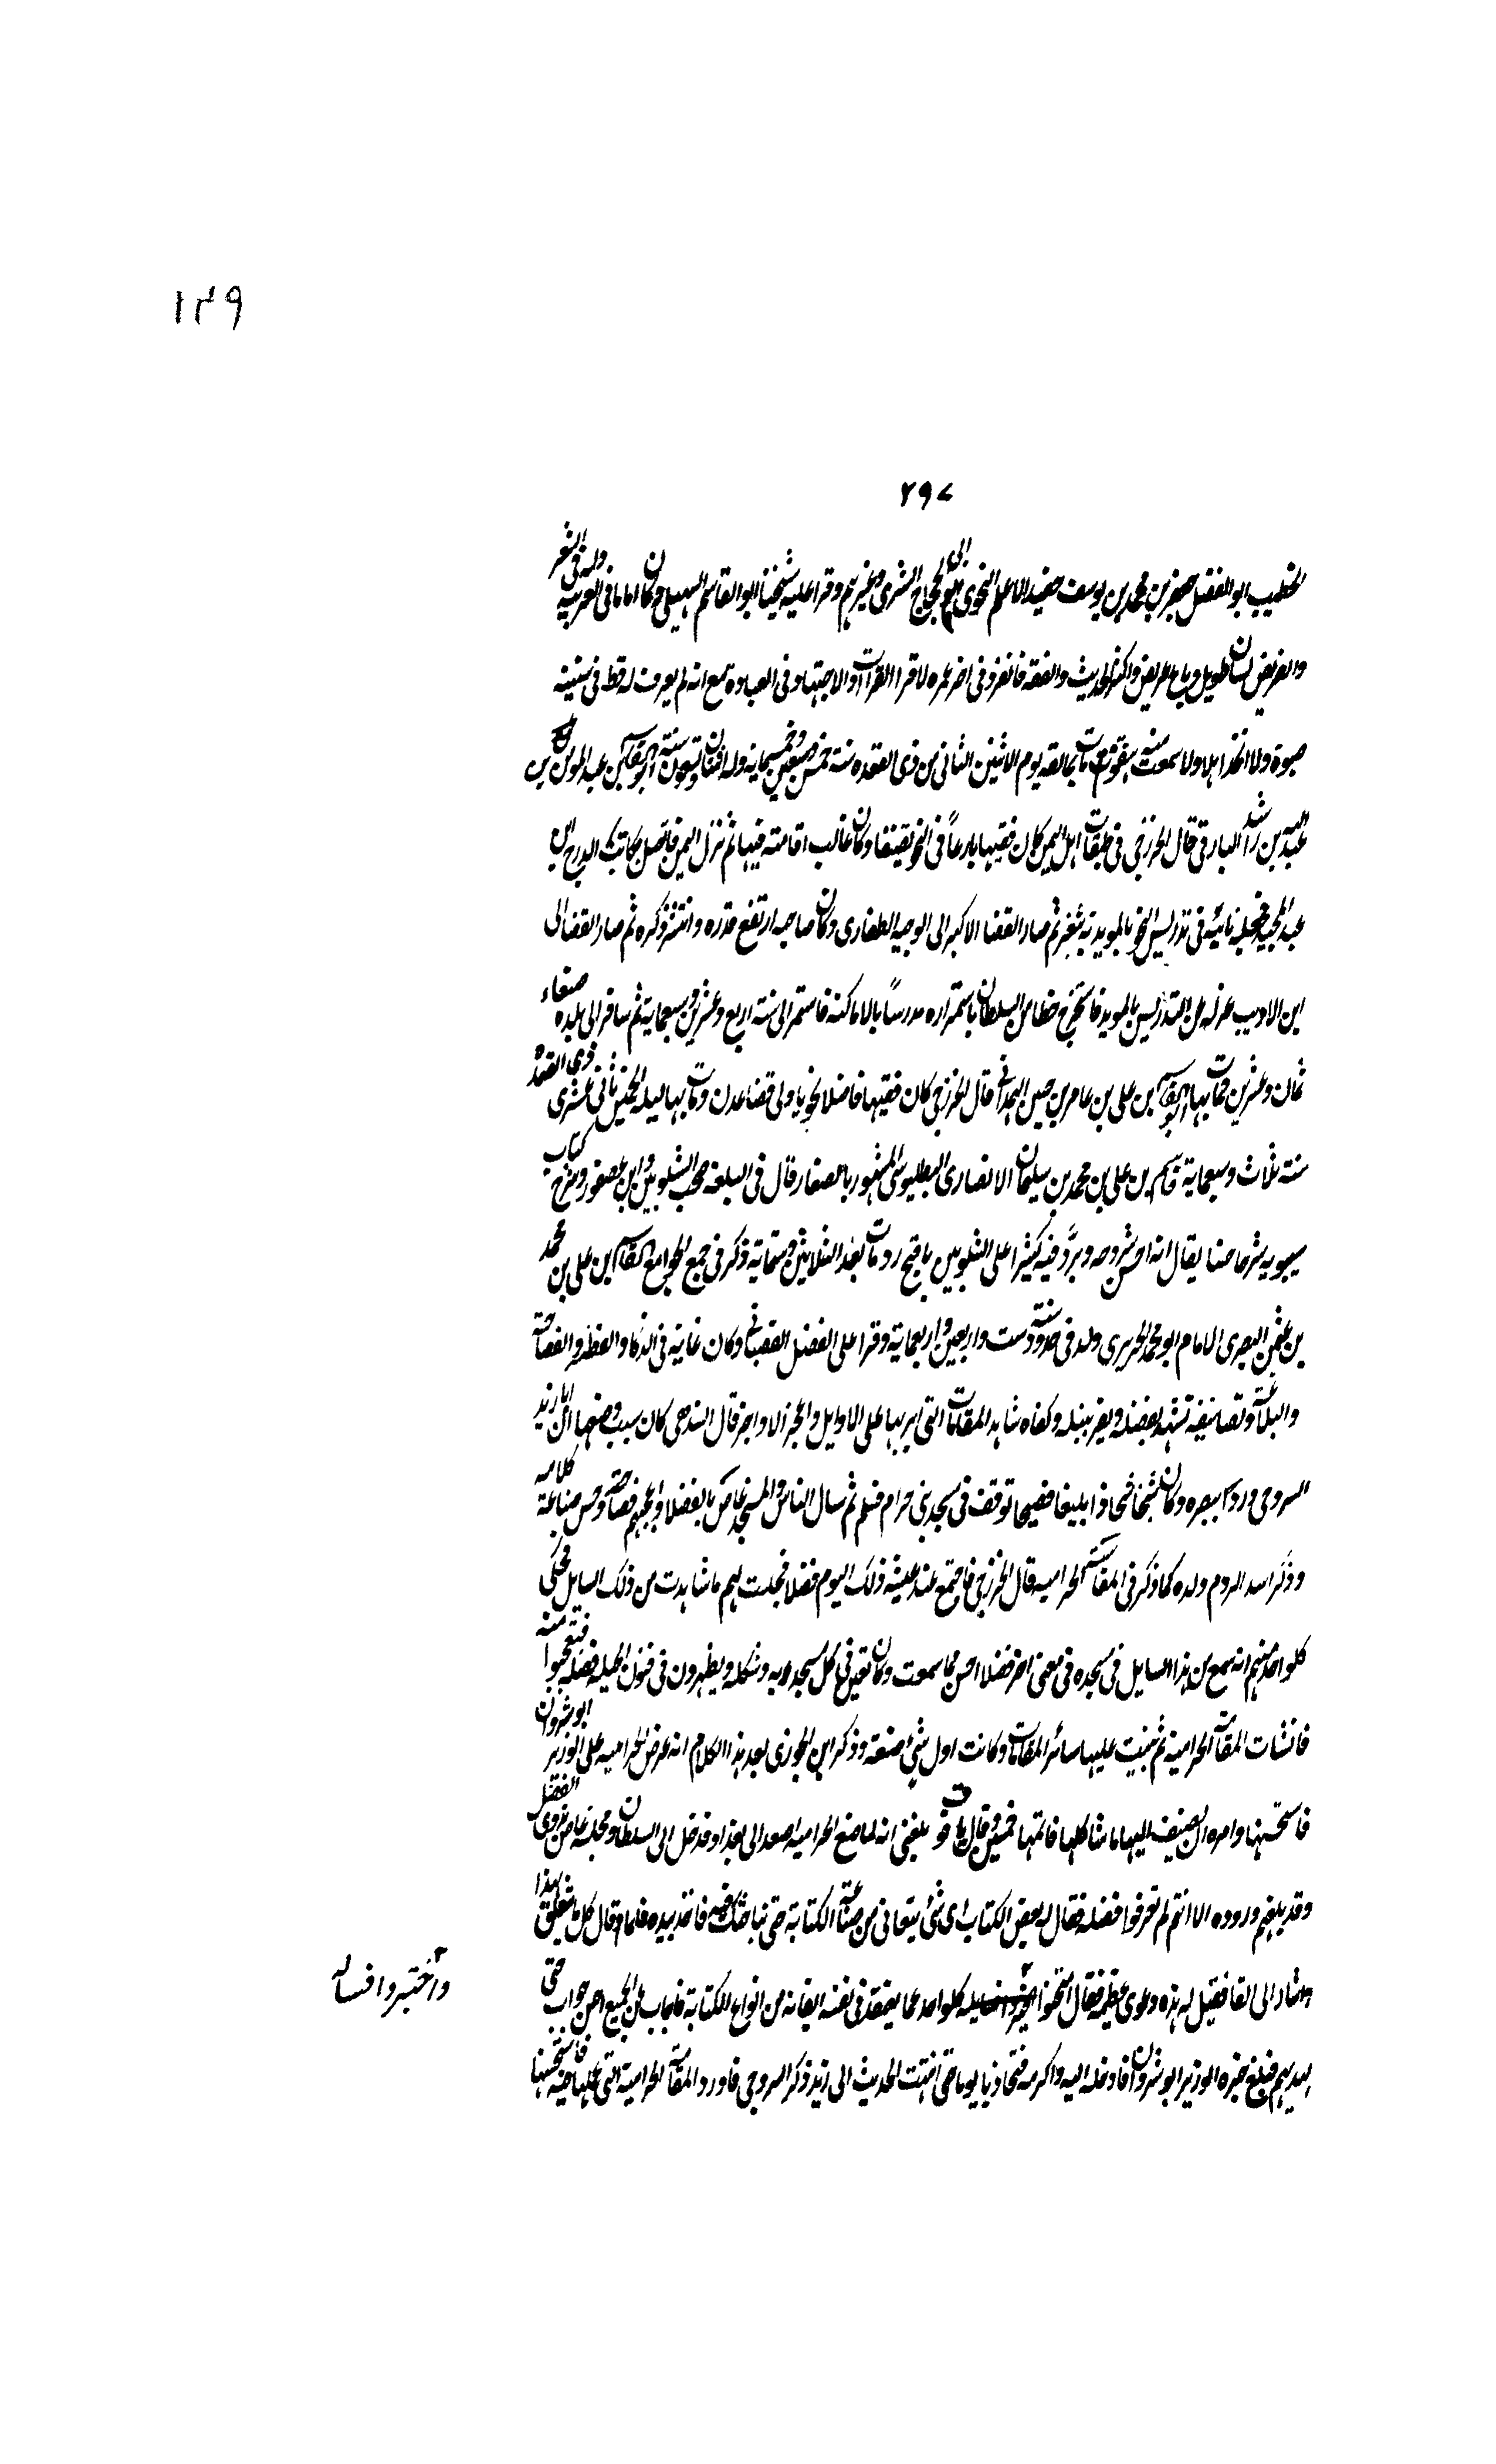 ١٣٩
٢٩٧
الخطيب ابو الفضل جعفر بن محمد بن يوسف حفيد الاعلم النحوى ابى الحجاج الشنتمرى وغيرهم وقرا عليه شيخنا ابو القاسم السهيلى وكان اماما فى العربية وله فى الشعر
والقريض لسان طويل وباع عريض واكثر الحديث والفقه فانفرد فى اخر عمره لاقرا القرآن والاجتهاد فى العبادة مع انه لم يعرف له قط فى سنينه
صبوة ولا اتخذ اهلا ولا سمعت منه هفوة ومات بمالقه يوم الاثنين الثانى من ذى القعده سنة خمس وسبعين وخمسماية وله اثنتان وتسعون سنة ابو القاسم بن عبد المومن بن
عبد الله بن راشد البارقى قال الخزرجى فى طبقات اهل اليمن كان فقيها بارعاً فى النحو وكان غالب اقامته فيها ثم نزل اليمن فاتصل بكاتب الدرج ابن
عبد المجيد فجعله نائبه فى تدريس النحو بالمويدية بتعز ثم صار القضا الاكبر الى الوجيه الظفارى وكان صاحبه ارتفع قدره وانتشر ذكره ثم صار القضا الى
ابن الاديب عزله من التدريس بالمويديه فاستخرج خطا من السلطان باستمراره مدرساً بالاماكنة فاستمر الى سنة اربع وعشرين وسبعماية ثم سافر الى بلده صنعاء
ثمان وعشرين فمات بها ابو القاسم بن على بن عامر بن حسين الهمدانى قال الخزرجى كان فقيها فاضلا نحويا ولى قضا عدن ومات بها ليله الخميس ثانى عشرى ذى القعدة
سنة ثلاث وسبعماية قاسم بن على بن محمد بن سليمان الانصارى البطليوسى المشهور بالصفار قال فى البلغه صحب الشلوبين وابن عصفور وشرح كتاب
سيبويه شرحا حسنا يقال انه احسن شروحه ويردّ فيه كثيرا على الشلوبين باقبح رد مات بعد الثلاثين وستماية ذكر فى جمع الجوامع القاسم بن على بن محمد
بن عثمن البصرى الامام ابو محمد الحريرى ولد فى حدود سنة ست واربعين واربعماية وقرا على الفضل القصبانى وكان غاية فى الذكا والفطنه والفصاحة
والبلاغة وتصانيفه تشهد بفضله ويقر بنبله وكفاه شاهد المقامات التى ابر بها على الاوايل واعجز الاواخر قال البندهى كان سبب وضعها ان ابا زيد
السروجى ورد البصره وكان شيخا شحاذا بليغا فصيحا توقف فى مسجد بنى حرام فسلم ثم سال الناس والمسجد غاص بالفضلا واعجبهم فصاحته وحسن صناعة كلامه
وذكر اسر الروم ولده كما ذكر فى المقامة الحراميه قال الخزرجى فاجتمع عند عشية ذلك اليوم فضلا فحكيت لهم ما شاهدت من ذلك السايل فحكى
كل واحد منهم انه سمع من هذا السايل فى مسجده فى معنى اخر فضلا احسن مما سمعت وكان يغير فى كل مسجد زيه وشكله ويظهر فى فنون الحيله فضله فتعجبوا منه
فانشات المقامة الحرامية ثم بنيت عليها سائر المقامات وكانت اول شئ صنعة وذكر ابن الجوزى بعد هذا الكلام انه عرض الحراميه على الوزير انوشروان
فاستحسنها وامره ان يضيف اليها ما شاكلها فاتمها خمسين وقال ياقوت بلغنى انه لما صنع الحراميه اصعد الى بغداد فدخل الى السلطان ومجلسه غاص بذوى الفضل
وقد بلغهم وروده الا انهم لم يعرفوا فضله فقال له بعض الكتاب اى شئ تتعانى من صناعة الكتابة حتى نباحثك فيه فاخذ بيده قلما وقال كل ما يتعلق بهذا
واشار الى القلم فقيل له هذه دعوى عظيمة فقال امتحنوا فساله كل واحد عما يعتقد فى نفسه اتقانه من انواع الكتابة فاجاب عن الجميع احسن جواب حتى
بهرهم فبلغ خبره الوزير انوشروان فادخله اليه واكرمه فتحادثا يوما حتى انتهت الحديث الى زيد ذكر السروجى فاورد المقامة الحرامية التى عملها فيه فاستحسنها
واختبروا فساله